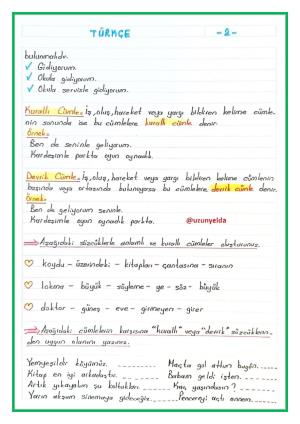 TÜRKÇE -2-
bulunmalıdır.
✓ Gidiyorum.
✓ Okula gidiyorum.
✓ Okula servisle gidiyorum.
Kurallı Cümle: İş, oluş, hareket veya yargı bildiren kelime cümle-
nin sonunda ise bu cümlelere kurallı cümle denir.
Örnek:
Ben de seninle geliyorum.
Kardeşimle parkta oyun oynadık.
Devrik Cümle: İş, oluş, hareket veya yargı bildiren kelime cümlenin
başında veya ortasında bulunuyorsa bu cümlelere devrik cümle denir.
Örnek:
Ben de geliyorum seninle.
Kardeşimle oyun oynadık parkta. @uzunyelda
Aşağıdaki sözcüklerle anlamlı ve kurallı cümleler oluşturunuz.
koydu - üzerindeki - kitapları - çantasına - sıranın
lokma - büyük - söyleme - ye - söz - büyük
doktor - güneş - eve - girmeyen - girer
Aşağıdaki cümlelerin karşısına "kurallı" veya "devrik" sözcüklerin-
den uygun olanını yazınız.
Yemyeşildir köyümüz. Maçta gol attım bugün.
Kitap en iyi arkadaştır. Babam geldi işten.
Artık yıkayalım şu koltukları. Kaç yaşındasın?
Yarın akşam sinemaya gideceğiz. Pencereyi açtı annem.